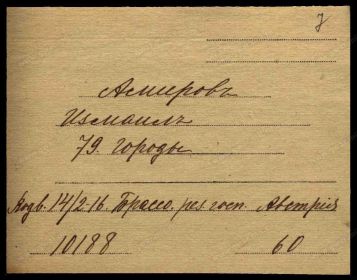 7
Асмировъ
Измаилъ
79. городы
Подв. 14/2-16. Брассо. рез. госп. Австрія
10188 60